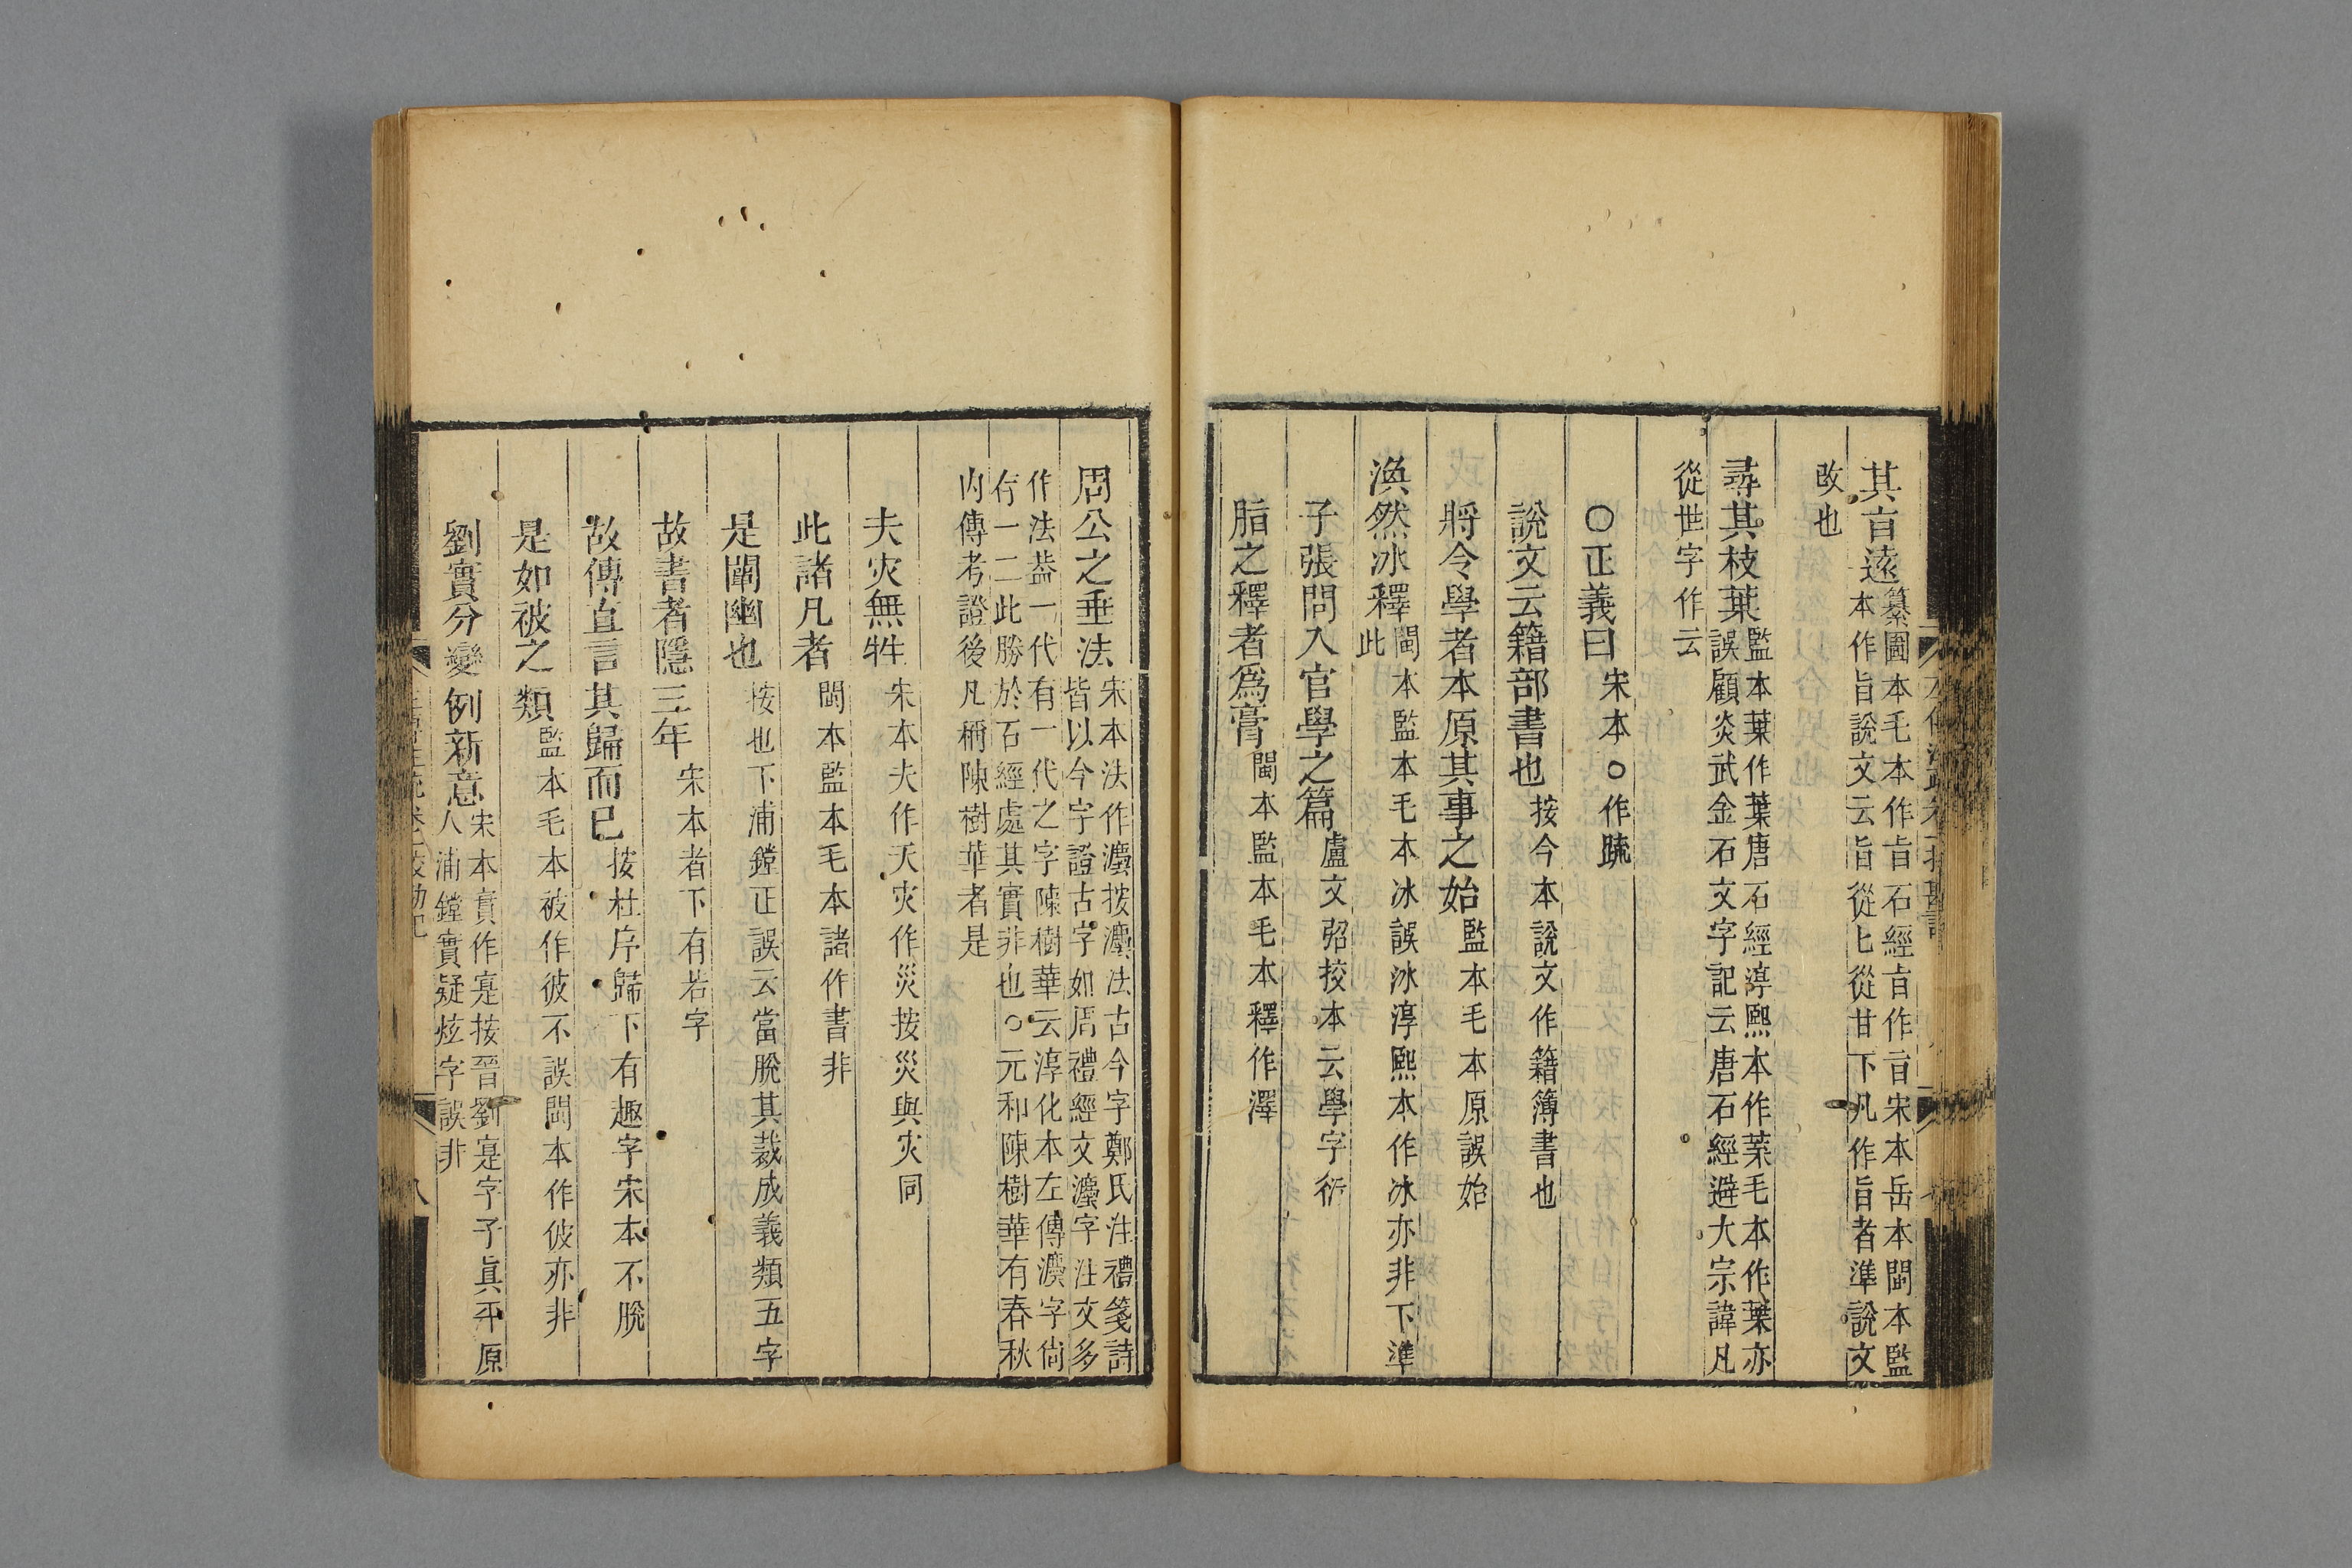 其㫖遠纂圖本毛本作㫖石經㫖作㫖宋本岳本閩本監
本作旨說文云旨從匕從甘下凡作旨者準說文
改也
尋其枝葉監本葉作葉唐石經淳熙本作𦯧毛本作葉亦
誤顧炎武金石文字記云唐石經避太宗諱凡
從世字作云
〇正義曰宋本〇作䟽
說文云籍部書也按今本說文作籍簿書也
將令學者本原其事之始監本毛本原誤始
渙然冰釋閩本監本毛本冰誤氷淳熙本作氷亦非下準
此
子張問入官學之篇盧文弨挍本云學字衍
脂之釋者爲膏閩本監本毛本釋作澤
周公之垂法宋本法作灋按灋法古今字鄭氏注禮箋詩
皆以今字證古字如周禮經文灋字注文多
作法葢一代有一代之字陳樹華云淳化本左傳灋字尙
存一二此勝於石經處其實非也〇元和陳樹華有春秋
內傳考證後凡稱陳樹華者是
夫灾無牲宋本夫作天灾作災按災與灾同
此諸凡者閩本監本毛本諸作書非
是闡幽也按也下浦鏜正誤云當脫其裁成義類五字
故書者隱三年宋本者下有若字
故傳直言其歸而已按杜序歸下有趣字宋本不脫
是如被之類監本毛本被作彼不誤閩本作佊亦非
劉實分變例新意宋本實作寔按晉劉寔字子眞平原
人浦鏜實疑炫字誤非
八